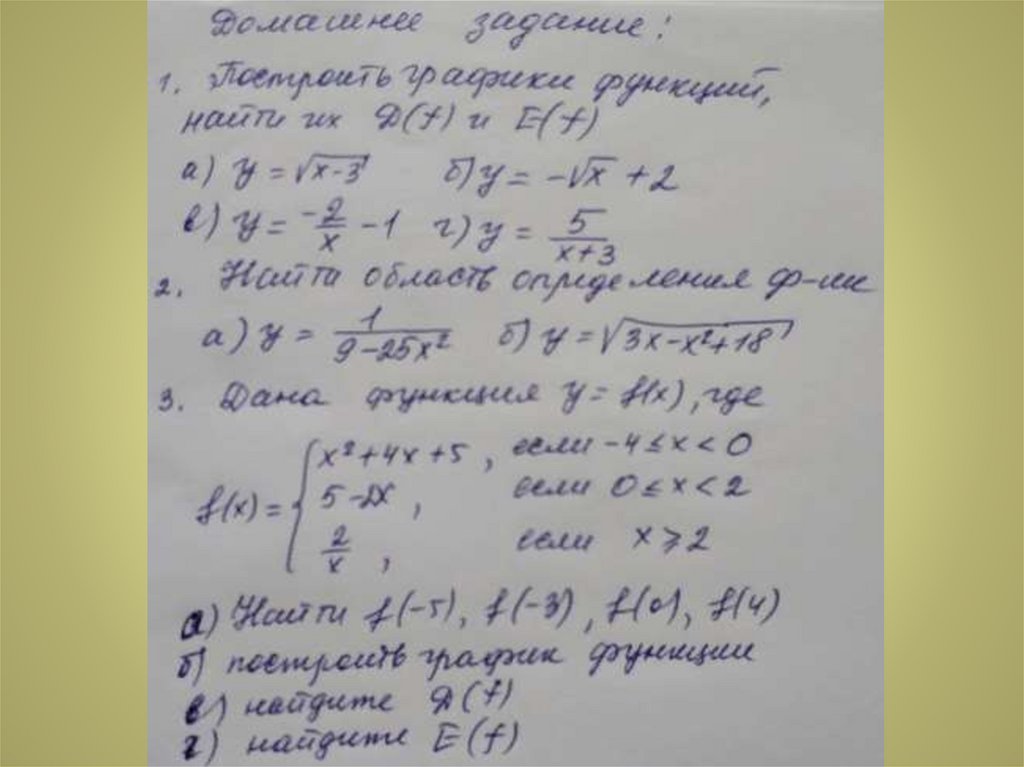 Домашнее задание:
1. Построить графики функций,
найти их D(f) и E(f)
а) y = √x-3 б) y = -√x + 2
в) y = -2/x - 1 г) y = 5/x+3
2. Найти область определения ф-ии
а) y = 1/9-25x² б) y = √3x-x²+18
3. Дана функция y = f(x), где
x²+4x+5, если -4 ≤ x < 0
f(x) = { 5-2x, если 0 ≤ x < 2
2/x, если x ⩾ 2
а) Найти f(-5), f(-3), f(0), f(4)
б) построить график функции
в) найдите D(f)
г) найдите E(f)